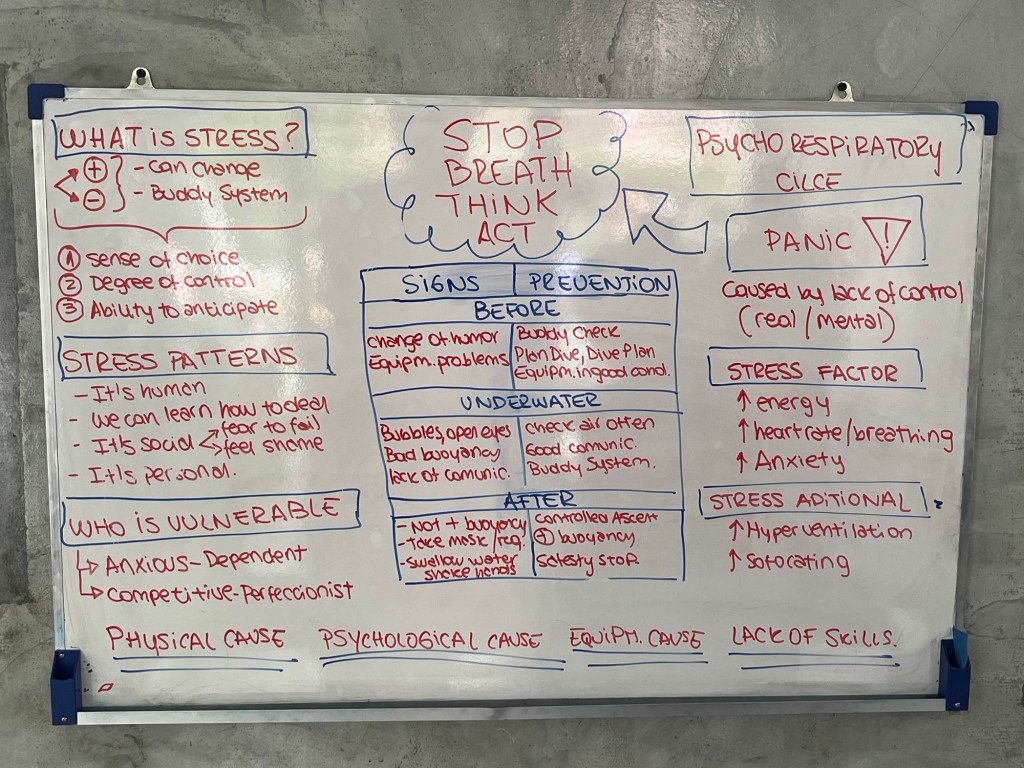 WHAT iS STRESS?
+ - Can change
- - Buddy System
1 sense of choice
2 Degree of control
3 Ability to anticipate
STRESS PATTERNS
- It's human
- We can learn how to deal
- It's social fear to fail
feel shame
- It's personal.
WHO iS VULNERABLE
Anxious-Dependent
Competitive-Perfeccionist
STOP
BREATH
THiNK
ACT
SiGNS PREVENTiON
BEFORE
change of humor Buddy Check
Equipm. problems Plan Dive, Dive Plan
Equipm. in good cond.
UNDERWATER
Bubbles, open eyes check air often
Bad buoyancy Good comunic.
lack of comunic. Buddy System.
AFTER
- Not + buoyancy Controlled Ascent
- take mask / reg. + buoyancy
- swallow water Safesty Stop.
shake hands
PSYCHO RESPiRATORY
CiLCE
PANiC !
Caused by lack of control
(real / mental)
STRESS FACTOR
↑ energy
↑ heart rate / breathing
↑ Anxiety
STRESS ADiTiONAL
↑ Hyperventilation
↑ Sofocating
PHYSiCAL CAUSE PSYCHOLOGiCAL CAUSE EQUiPM. CAUSE LACK OF SKiLLS.